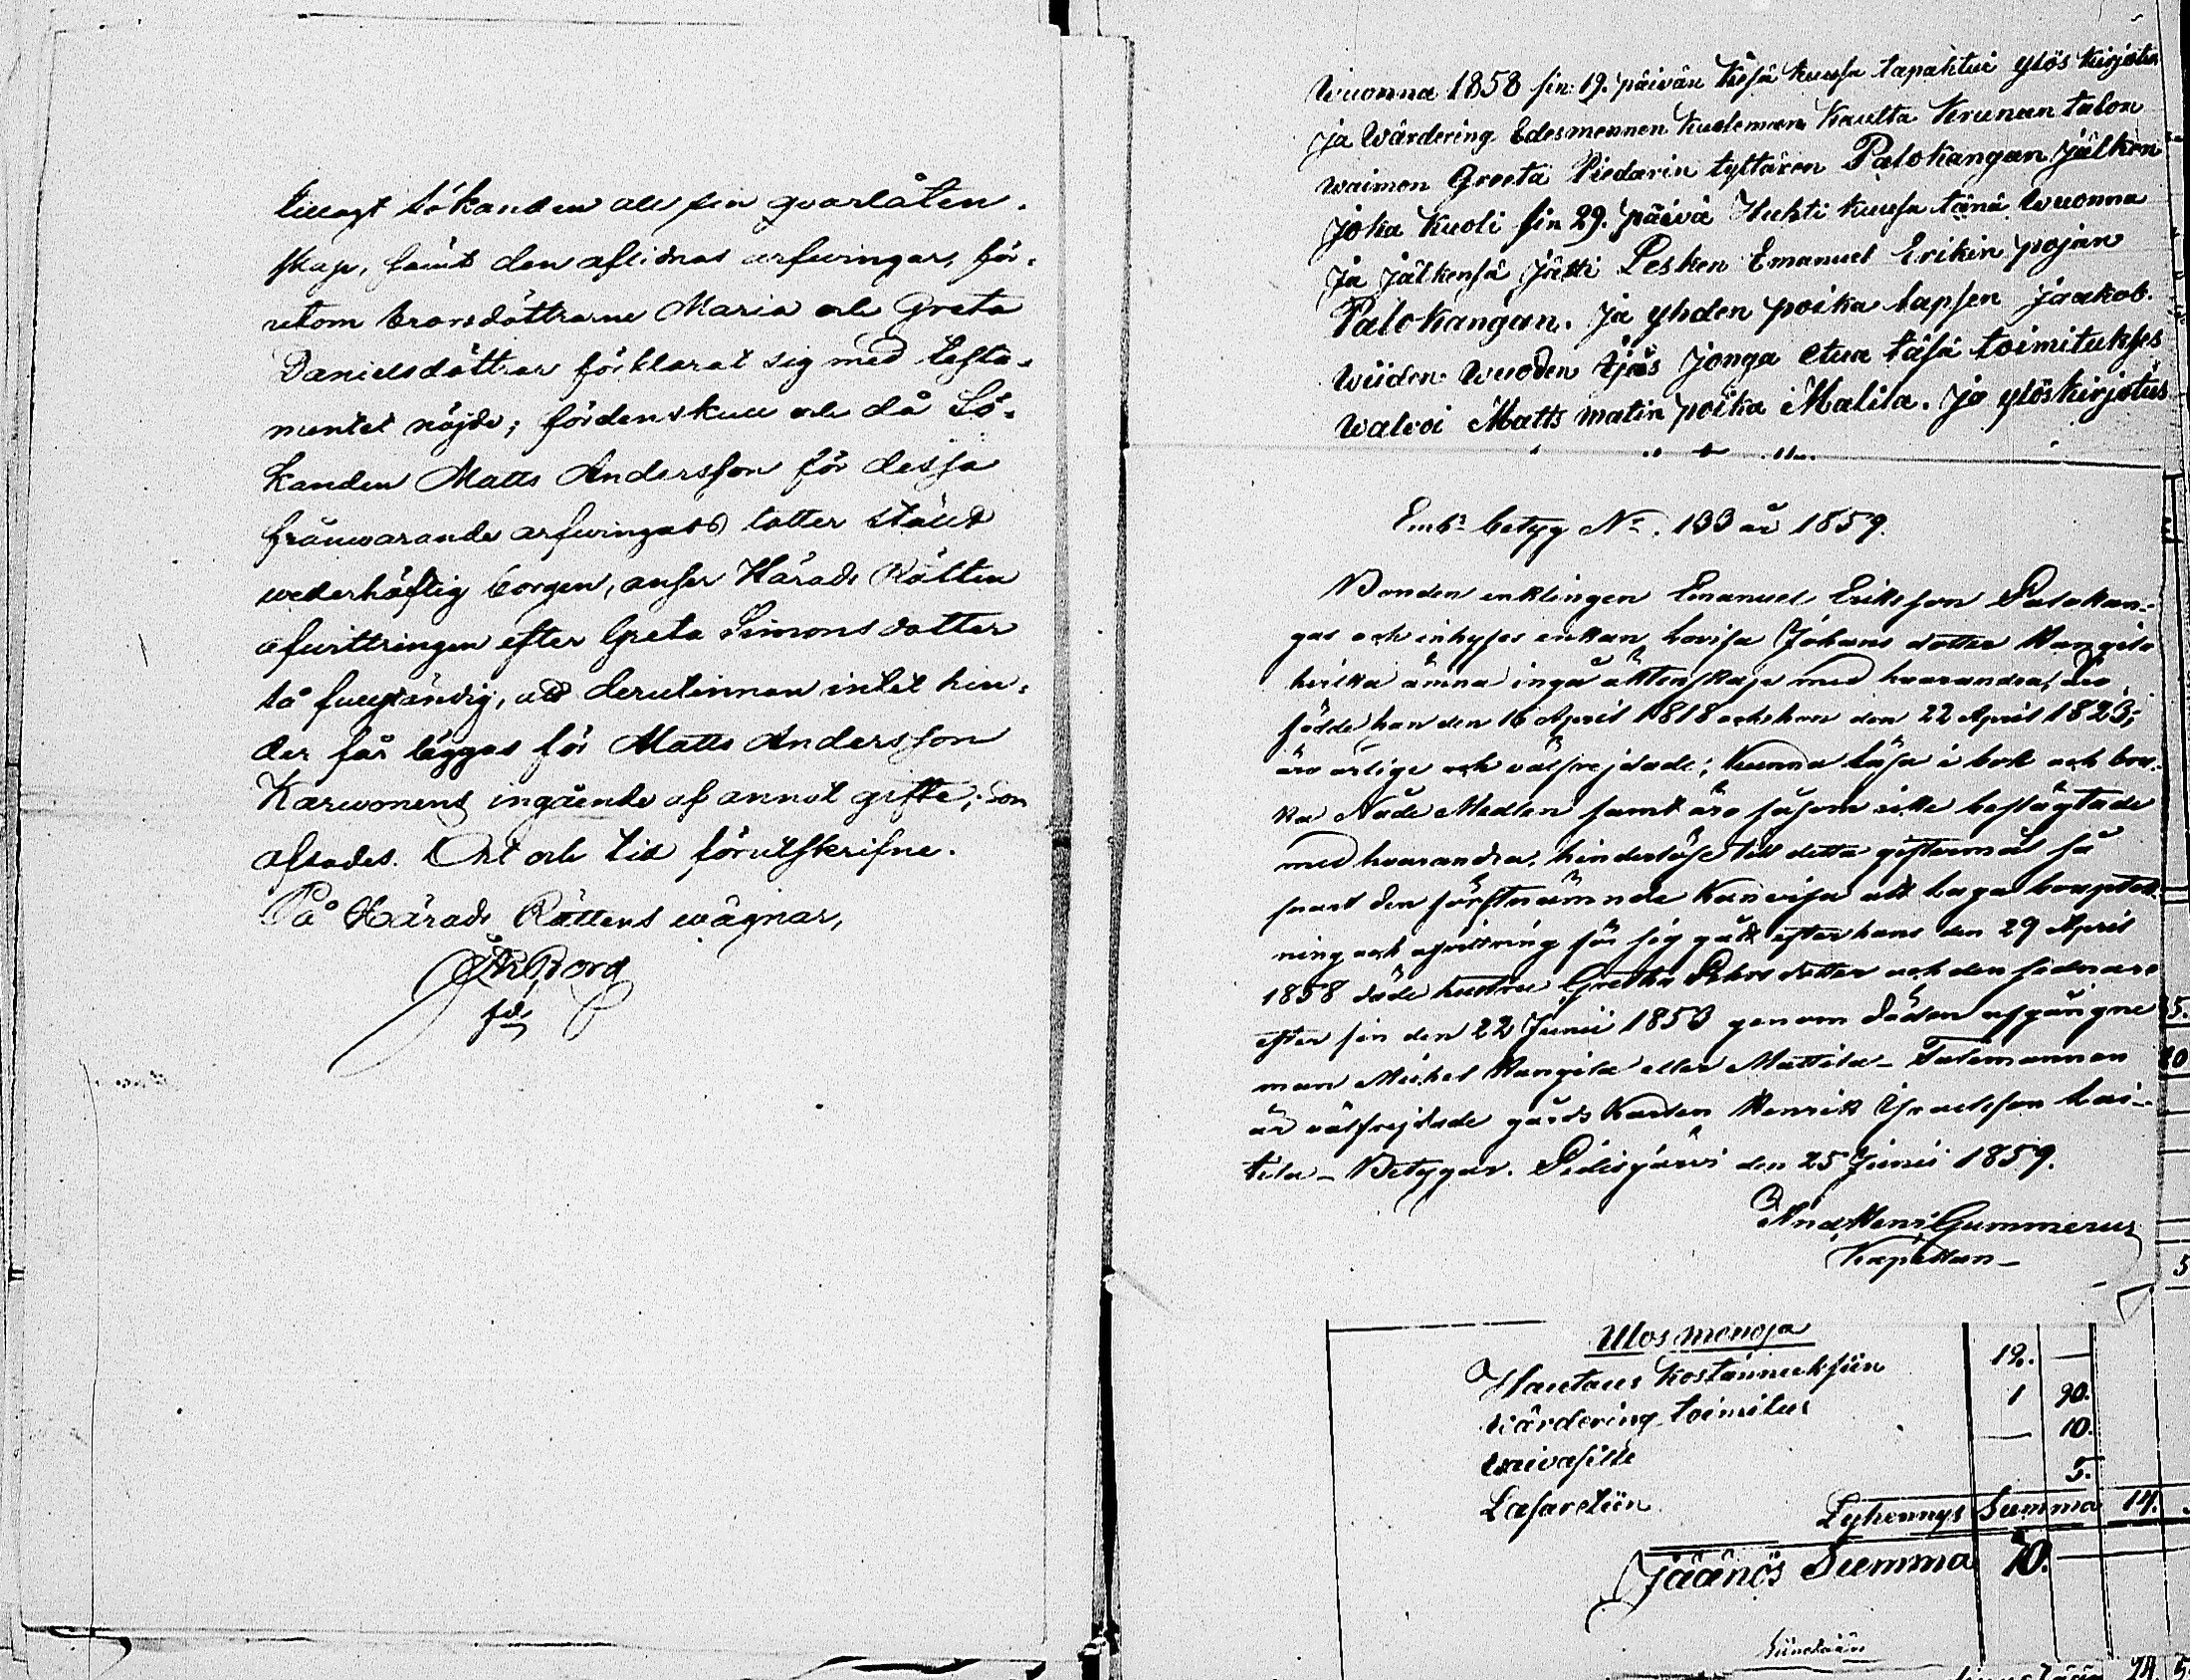 tillagt sökanden all sin qvarlåten-
skap, samt den aflidnas arfwingar, för-
utom brorsdöttrarne Maria och Greta
Danielsdöttrar förklarat sig med testa-
mentet nöjde; fördenskull och då Sö-
kanden Matts Andersson för dessa
frånwarande arfwingars lotter ställt
wederhäftig borgen, anser Härads Rätten
afwittringen efter Greta Simonsdotter
så fullständig, att derutinnan intet hin-
der får läggas för Matts Andersson
Karwonens ingående af annat gifte; som
afsades. Ort och tid förutskrifne.
På Härads Rättens wägnar,
Wuonna 1858 sin 19. päivän Kesä kuusa tapahtui ylös kirjotus
ja Wärdering Edesmennen kuoleman kautta Krunun talon
waimon Greeta Piedarin tyttären Palokangan jälken
joka kuoli sin 29. päivä Huhti kuusa tänä wuonna
ja jälkensä jätti Lesken Emanuel Erikin pojan
Palokangan. ja yhden poika lapsen jaakob.
wiiden wuoden ijäs jonga etua täsä toimitukses
walvoi Matts matin poika Malila. ja ylöskirjotus
Embs betyg No. 133 år 1859.
Bonden enklingen Emanuel Eriksson Palokan-
gas och inhyses enkan Lovisa Johans dotter Kangila
hvilka ämna ingå äktenskap med hvarandra, äro
födde han den 16 April 1818 och hon den 22 April 1823;
äro ärlige och välfrejdade; kunna läsa i bok och bru-
ka Nåde Medlen samt äro såsom icke beslägtade
med hvarandra, hinderlöse till detta giftermål så
snart den förstnämnde kan visa att laga bouptek-
ning och afvittring för sig gått efter hans den 29 April
1858 döde hustru Gretha Pehrs dotter och den sednare
efter sin den 22 Junii 1853 genom döden afgångne
man Michel Kangila eller Mattila - Talemannen
är välfrejdade gårds Karlen Henrik Isacksson Lai-
tila - Betygar. Pidisjärvi den 25 Junii 1859.
And. Henr. Gummerus
Kapellan -
Ulos menoja
Hautaus kostannuksiin 12. —
Wärdering toimitus 1 90.
Waivasille — 10.
Lasaretiin 5.
Lyhennys Summa 14.
Jäänös Summa 70. —